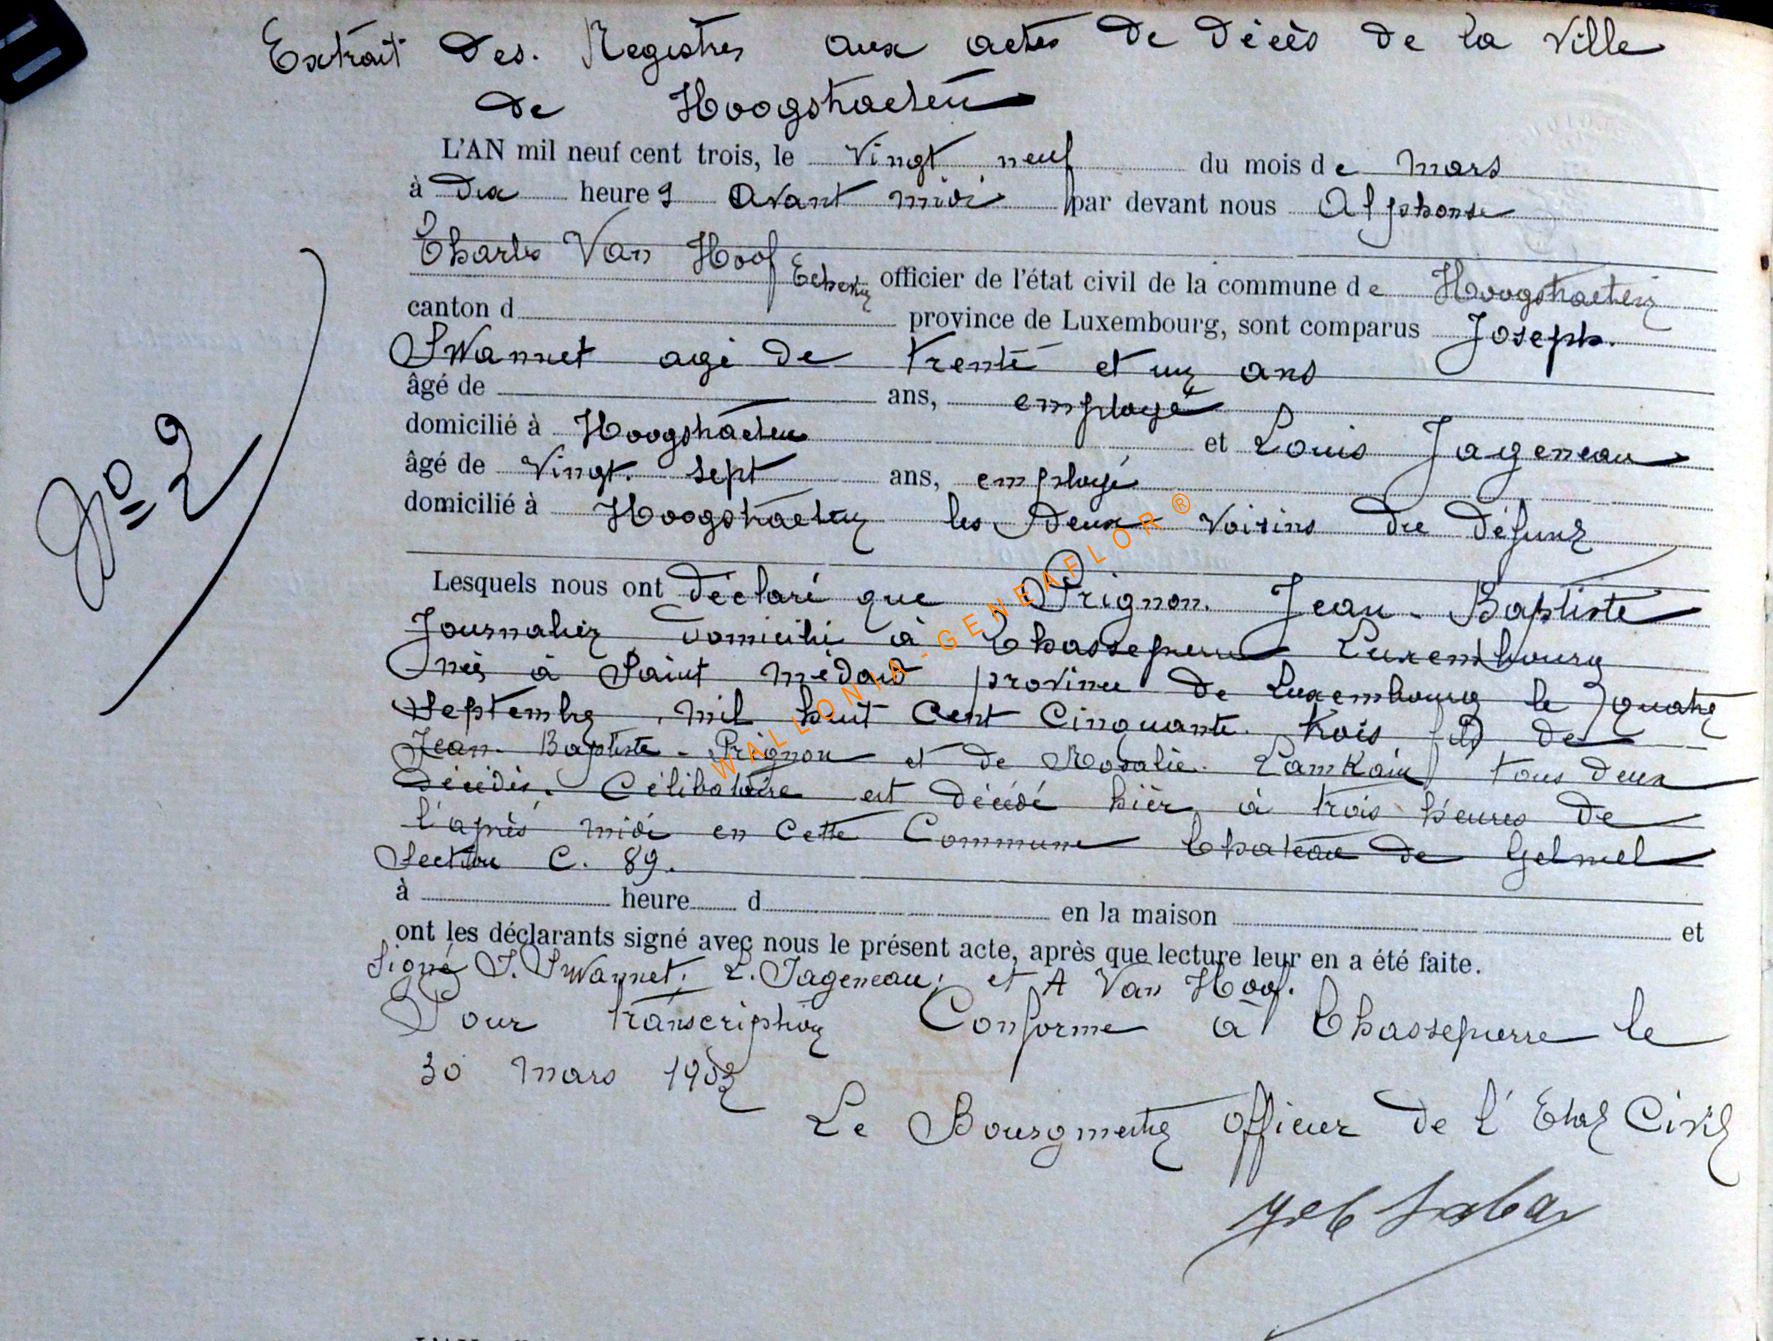 Extrait des. Registres aux actes de décès de la Ville
de Hoogstraeten
L'AN mil neuf cent trois, le Vingt neuf du mois de Mars
à dix heures avant midi par devant nous Alphonse
Charles Van Hoof Echevin officier de l'état civil de la commune de Hoogstraeten
canton d province de Luxembourg, sont comparus Joseph.
Swannet agé de trente et un ans
âgé de ans, employé
domicilié à Hoogstraeten et Louis Jageneau
âgé de Vingt. sept ans, employé
domicilié à Hoogstraeten les deux voisins du défunt
Lesquels nous ont déclaré que Prignon. Jean-Baptiste
Journalier domicilié à Chassepierre Luxembourg
né à Saint Médard province de Luxembourg le quatre
Septembre mil huit cent cinquante. trois fils de
Jean-Baptiste-Prignon et de Rosalie. Lamkain tous deux
décédés. Célibataire est décédé hier à trois heures de
l'après midi en cette Commune Chateau de Gelmel
Section C. 89.
à heure d en la maison et
ont les déclarants signé avec nous le présent acte, après que lecture leur en a été faite.
Signé J. Swannet, L. Jageneau, et A Van Hoof.
Pour transcription Conforme à Chassepierre le
30 Mars 1903
Le Bourgmestre officier de l'Etat Civil
No 2
WALLONIA-GENEAFLOR®